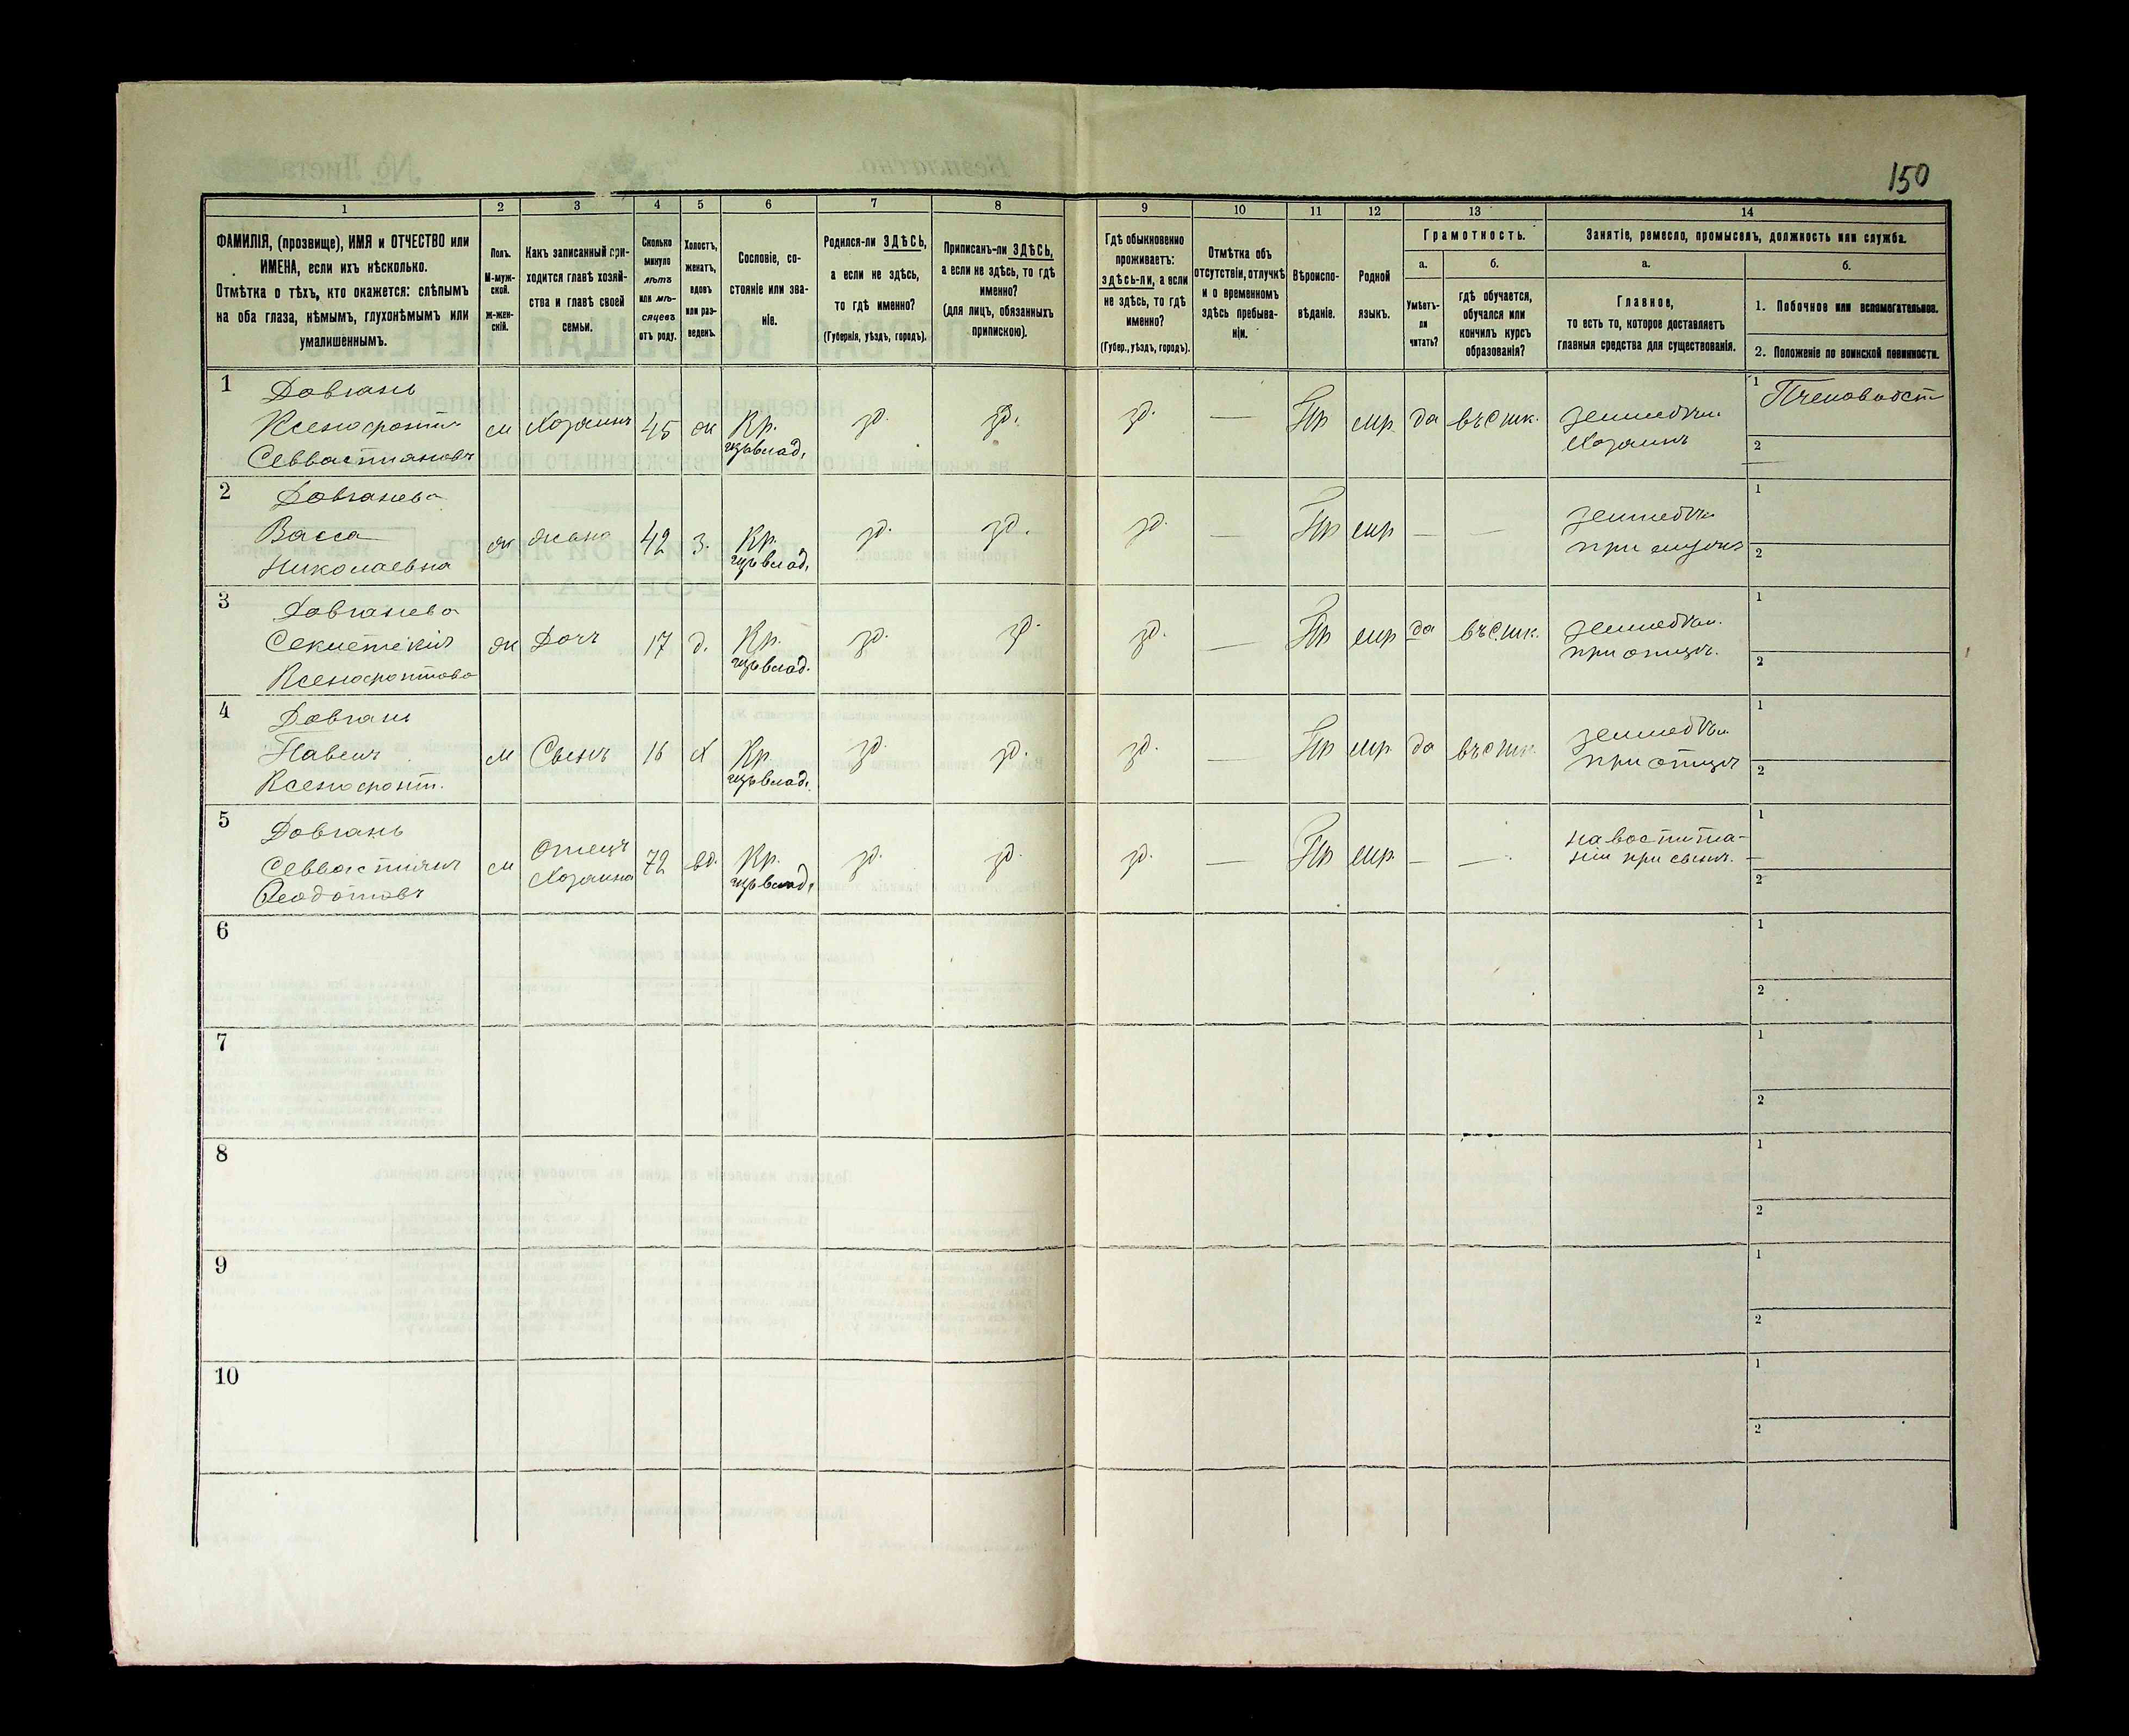 150
1 2 3 4 5 6 7 8 9 10 11 12 13 14
ФАМИЛІЯ, (прозвище), ИМЯ и ОТЧЕСТВО или
ИМЕНА, если ихъ нѣсколько.
Отмѣтка о тѣхъ, кто окажется: слѣпымъ
на оба глаза, нѣмымъ, глухонѣмымъ или
умалишеннымъ.
Полъ.
М-муж-
ской.
Ж-жен-
скій.
Какъ записанный при-
ходится главѣ хозяй-
ства и главѣ своей
семьи.
Сколько
минуло
лѣтъ
или мѣ-
сяцевъ
отъ роду.
Холостъ,
женатъ,
вдовъ
или раз-
веденъ.
Сословіе, со-
стояніе или зва-
ніе.
Родился-ли ЗДѢСЬ,
а если не здѣсь,
то гдѣ именно?
(Губернія, уѣздъ, городъ).
Приписанъ-ли ЗДѢСЬ,
а если не здѣсь, то гдѣ
именно?
(для лицъ, обязанныхъ
припискою).
Гдѣ обыкновенно
проживаетъ:
здѣсь-ли, а если
не здѣсь, то гдѣ
именно?
(Губер., уѣздъ, городъ).
Отмѣтка объ
отсутствіи, отлучкѣ
и о временномъ
здѣсь пребыва-
ніи.
Вѣроиспо-
вѣданіе.
Родной
языкъ.
Грамотность.
а.
Умѣетъ-
ли
читать?
б.
гдѣ обучается,
обучался или
кончилъ курсъ
образованія?
Занятіе, ремесло, промыселъ, должность или служба.
а.
Главное,
то есть то, которое доставляетъ
главныя средства для существованія.
б.
1. Побочное или вспомогательное.
2. Положеніе по воинской повинности.
1
Довгань
Ксенофонтъ
Севвастиановъ
м Хозяинъ 45 ж Кр.
зд. зд. зд. — Пр мр да въ с шк.
Хозяинъ
1 Пчеловодст
2
2
Довганева
Васса
Николаевна
ж жена 42 З. Кр.
зд. зд. зд. — Пр мр — —
при мужѣ
1
2
3
Довганева
Ксенофонтова
ж Дочъ 17 д. Кр.
зд. зд. зд. — Пр мр да въ с. шк.
при отцѣ.
1
2
4
Довгань
Павелъ
Ксенофонт.
м Сынъ 16 Х Кр
зд. зд. зд. — Пр мр да въ с шк.
при отцѣ
1
2
5
Довгань
Севвастиянъ
Феодотовъ
м Отецъ
Хозяина
72 вд. Кр.
зд. зд. зд. — Пр мр. — —
на воспита-
ніи при сынѣ.
1
2
6
1
2
7
1
2
8
1
2
9
1
2
10
1
2